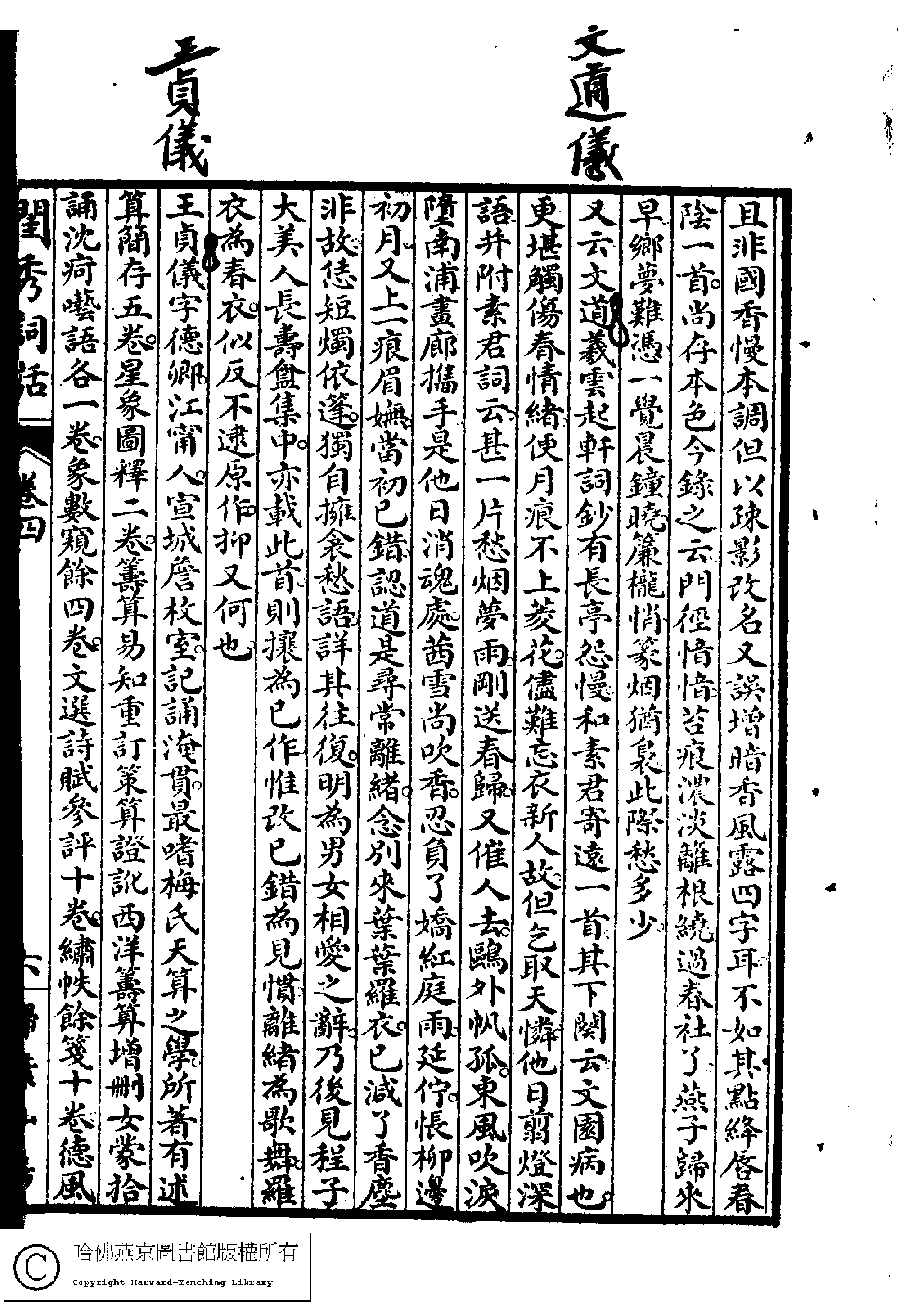 文道儀
王貞儀
且非國香慢本調但以疎影改名又誤增暗香風露四字耳不如其點絳唇春
陰一首尚存本色今錄之云門徑愔愔苔痕濃淡離根繞過春社了燕子歸來
早鄉夢難憑一覺晨鐘曉簾櫳悄篆烟猶裊此際愁多少
又云文道羲雲起軒詞鈔有長亭怨慢和素君寄遠一首其下闋云文園病也
更堪觸傷春情緒便月痕不上菱花儘難忘衣新人故但乞取天憐他日翦燈深
語幷附素君詞云甚一片愁烟夢雨剛送春歸又催人去鷗外帆孤東風吹淚
墮南浦畫廊攜手是他日消魂處茜雪尚吹香忍負了嬌紅庭雨延佇悵柳邊
初月又上一痕眉嫵當初已錯認道是尋常離緒念別來葉葉羅衣已減了香塵
非故恁短燭依篷獨自擁衾愁語詳其往復明為男女相愛之辭乃後見程子
大美人長壽盦集中亦載此首則攘為已作惟改已錯為見慣離緒為歌舞羅
衣為春衣似反不逮原作抑又何也
王貞儀字德卿江甯人宣城詹枚室記誦淹貫最嗜梅氏天算之學所著有述
算簡存五卷星象圖釋二卷籌算易知重訂策算證訛西洋籌算增刪女蒙拾
誦沈疴囈語各一卷象數窺餘四卷文選詩賦參評十卷繡帙餘箋十卷德風
閨秀詞話
卷四
六
哈佛燕京圖書館版權所有
Copyright Harvard-Yenching Library